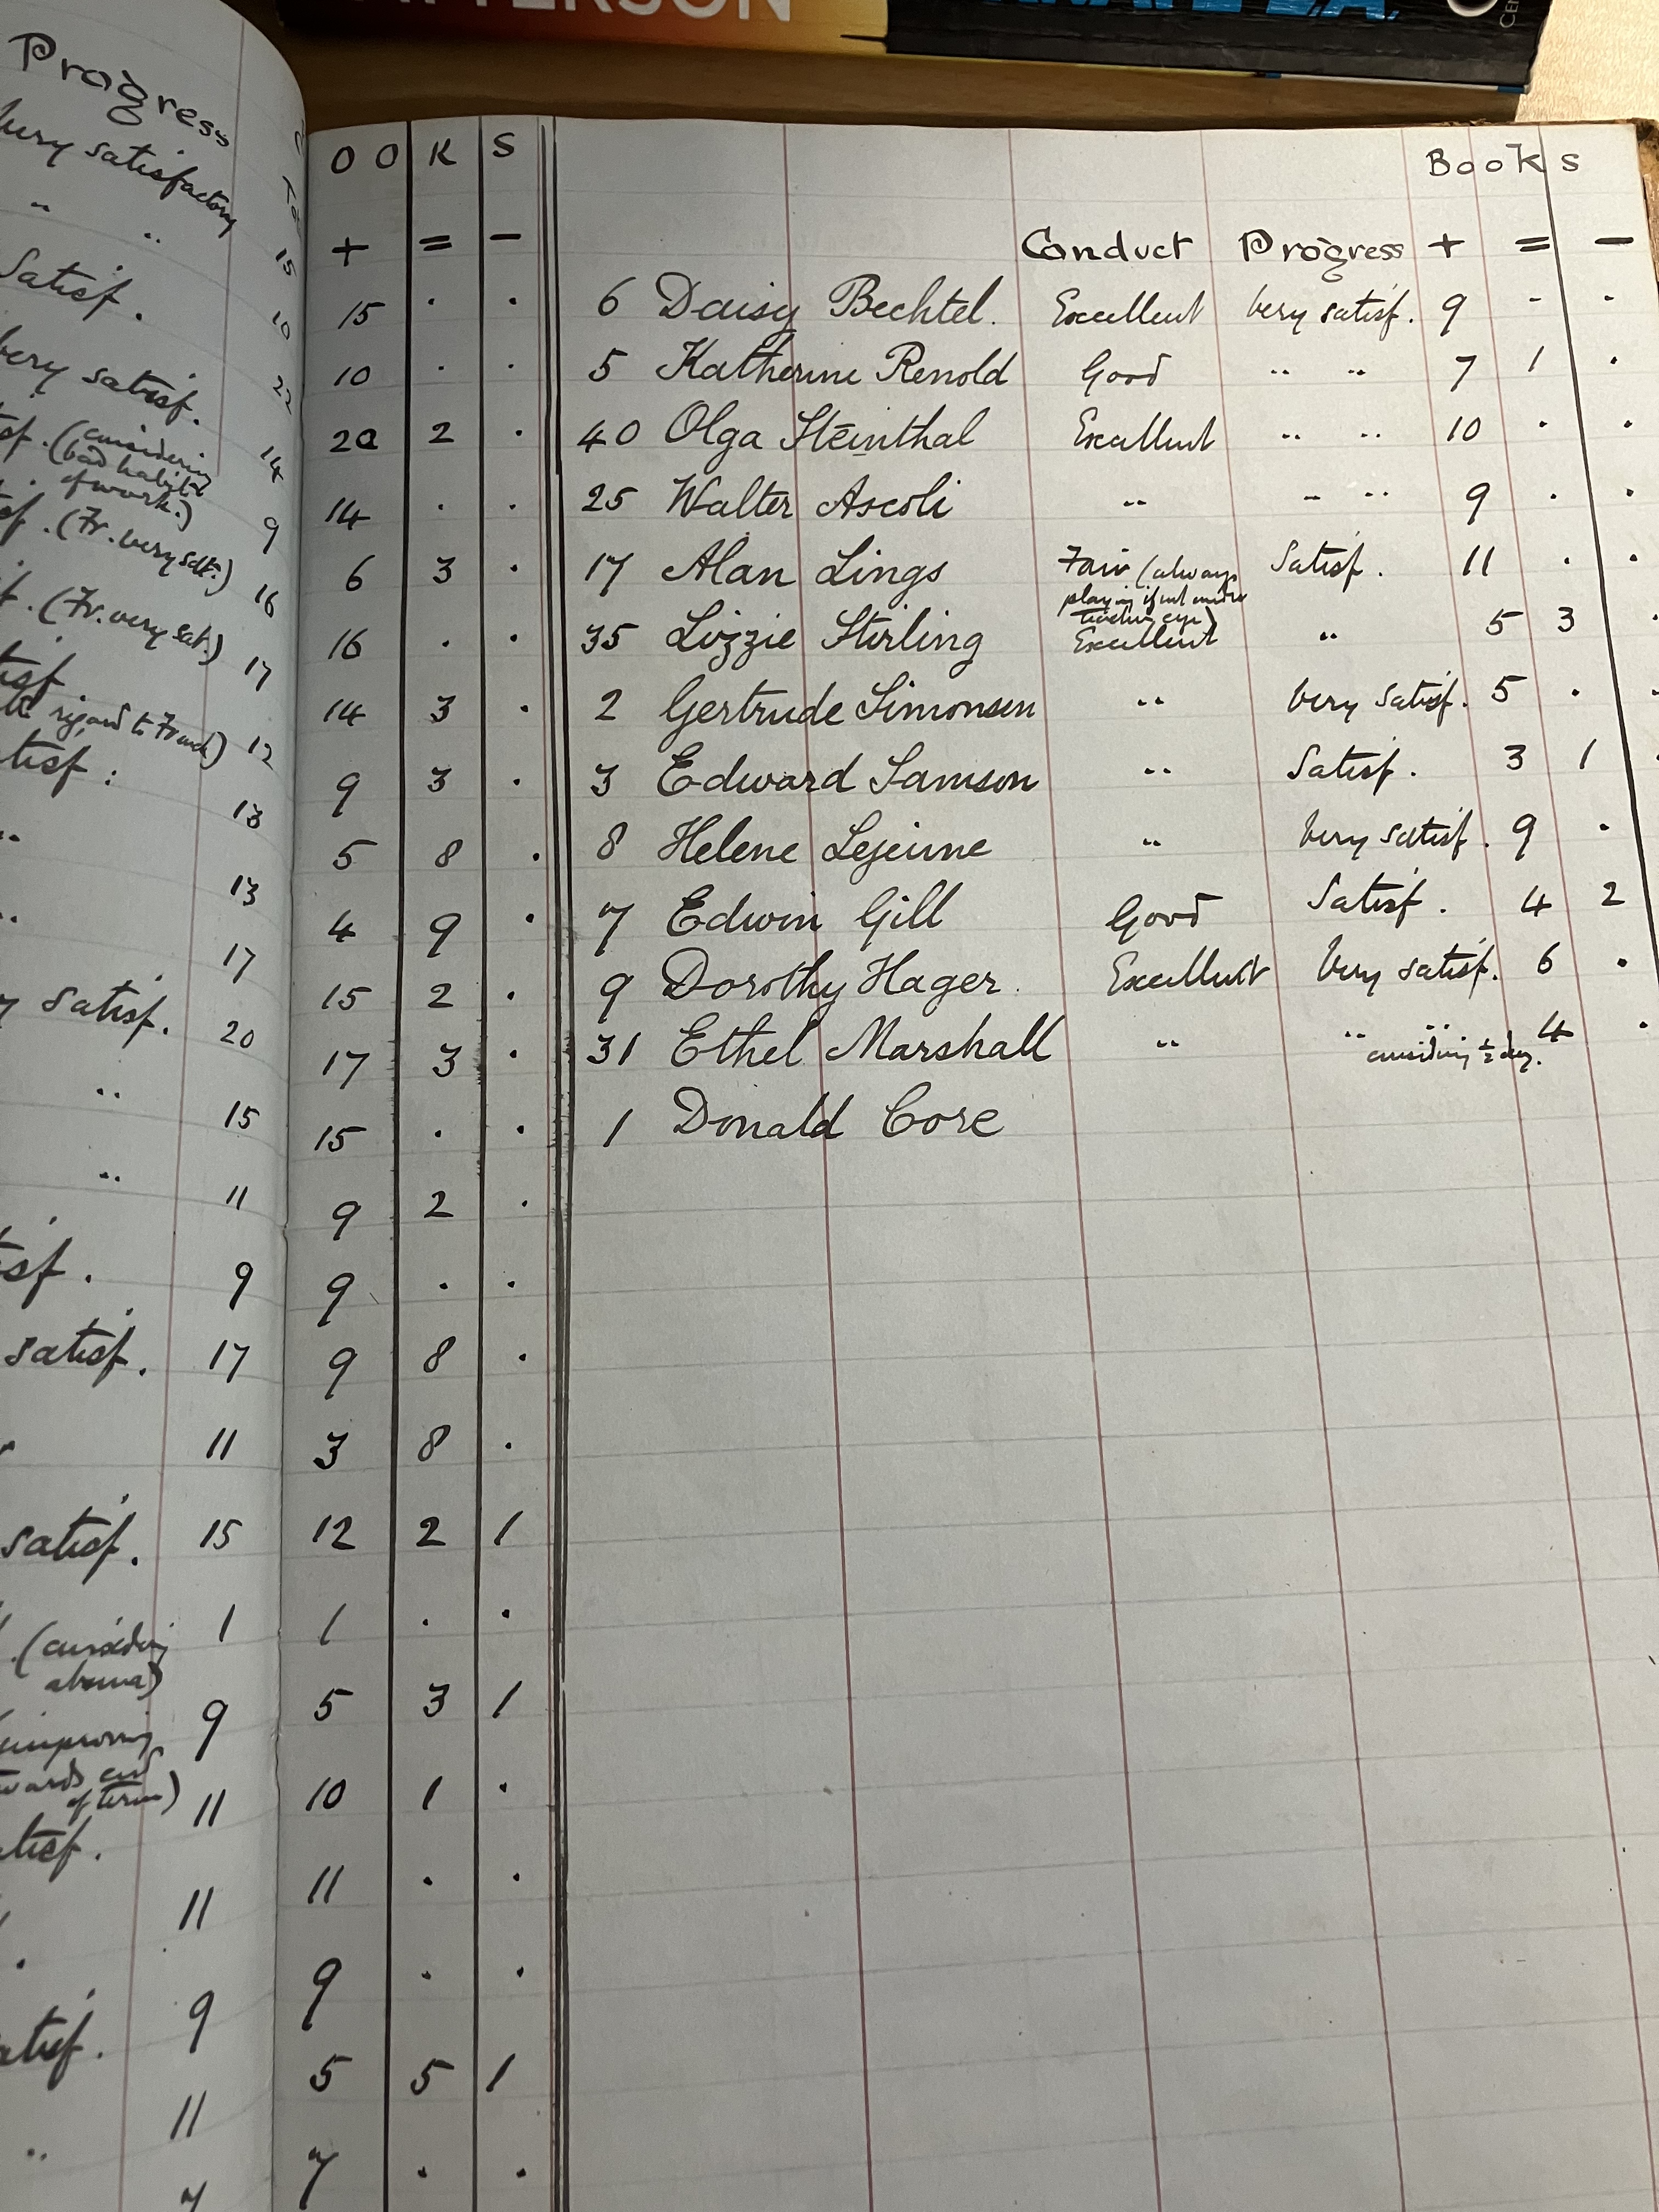 PATTERSON
Progress
very satisfactory
" "
15
Satisf.
10
very satisf.
22
(considering
bad habits
of work.)
14
(Fr. very satf.)
9
(Fr. very sat.)
16
17
regard to French)
12
satisf:
13
"
13
"
17
satisf.
20
"
15
"
11
9
satisf.
17
11
satisf.
15
(considering
1
9
improving
end
of term)
11
11
9
11
"
7
O O K S
+ = -
15 . .
10 . .
20 2 .
14 . .
6 3 .
16 . .
14 3 .
9 3 .
5 8 .
4 9 .
15 2 .
17 3 .
15 . .
9 2 .
9 . .
9 8 .
3 8 .
12 2 1
1 . .
5 3 1
10 1 .
11 . .
9 . .
5 5 1
7 . .
Books
Conduct Progress + = -
6 Daisy Bechtel. Excellent Very satisf. 9 - .
5 Katherine Renold Good " " 7 1 .
40 Olga Steinthal Excellent " " 10 . .
25 Walter Ascoli " " " 9 . .
17 Alan Lings Fair (always Satisf. 11 . .
playing if not under
teachers eye)
35 Lizzie Stirling Excellent " 5 3 .
2 Gertrude Simonsen " Very Satisf. 5 . .
3 Edward Samson " Satisf. 3 1 .
8 Helene Lejeune " Very satisf. 9 .
7 Edwin Gill Good Satisf. 4 2
9 Dorothy Hager. Excellent Very satisf. 6 .
31 Ethel Marshall " " " 4 .
considering ½ day.
1 Donald Core